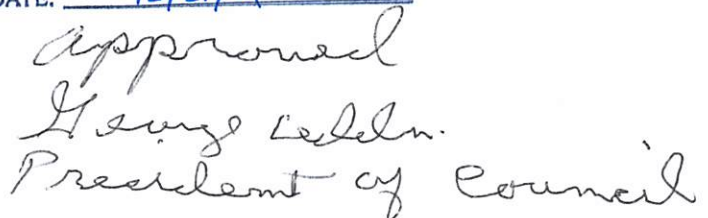 DATE:
approved
George
President of Council